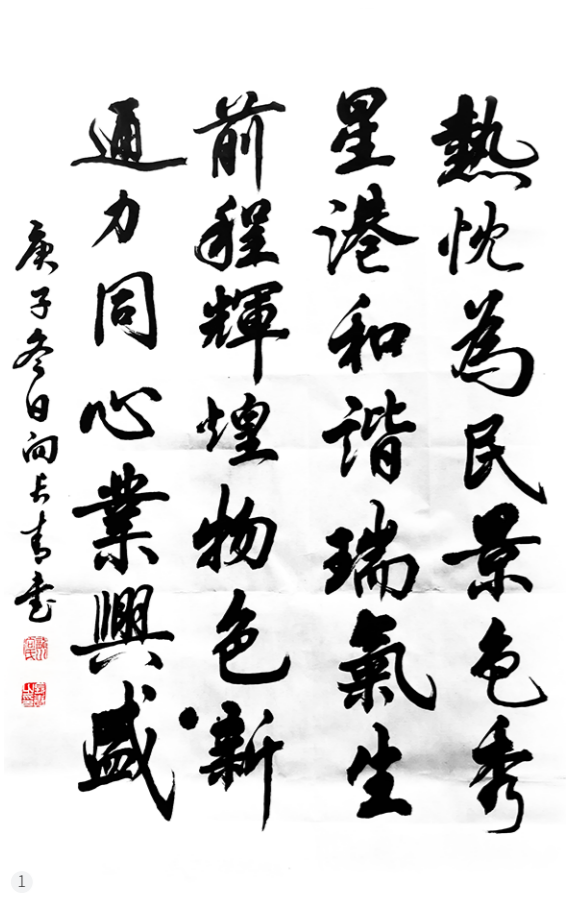 熱忱為民景色秀
星港和諧瑞氣生
前程輝煌物色新
通力同心業興盛
庚子冬日向长青书
1